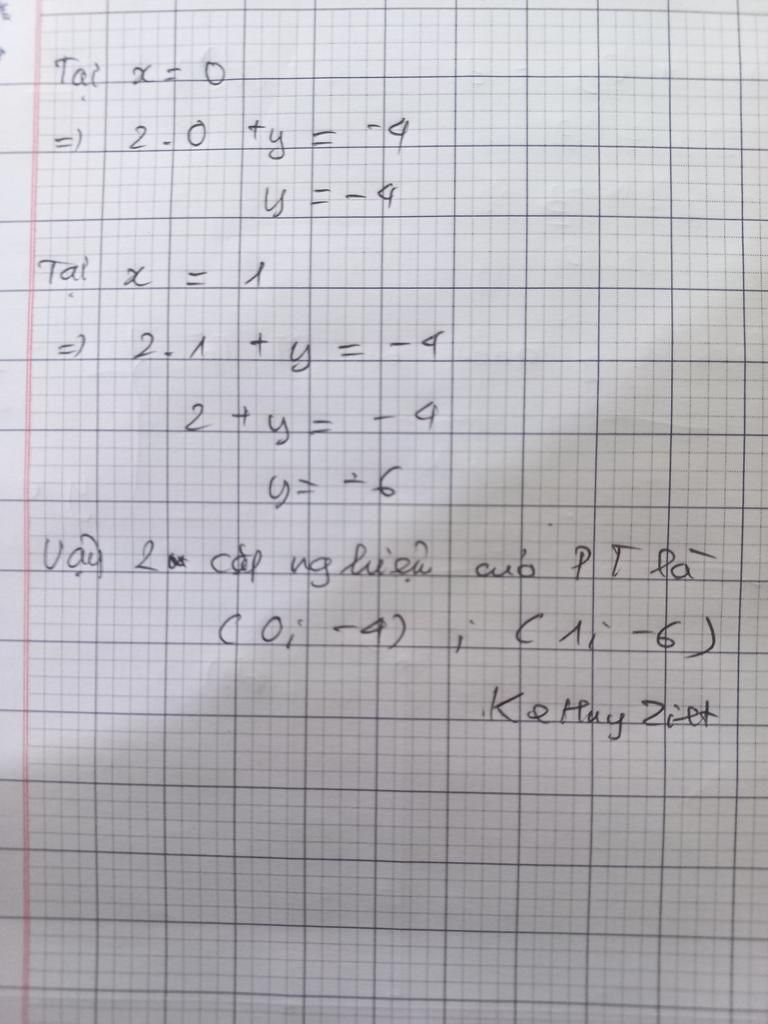 Tại x = 0
=) 2.0 + y = -4
y = -4
Tại x = 1
=) 2.1 + y = -4
2 + y = -4
y = -6
Vậy 2 cặp nghiệm của PT là
(0; -4) ; (1; -6)
KeHuyZiet